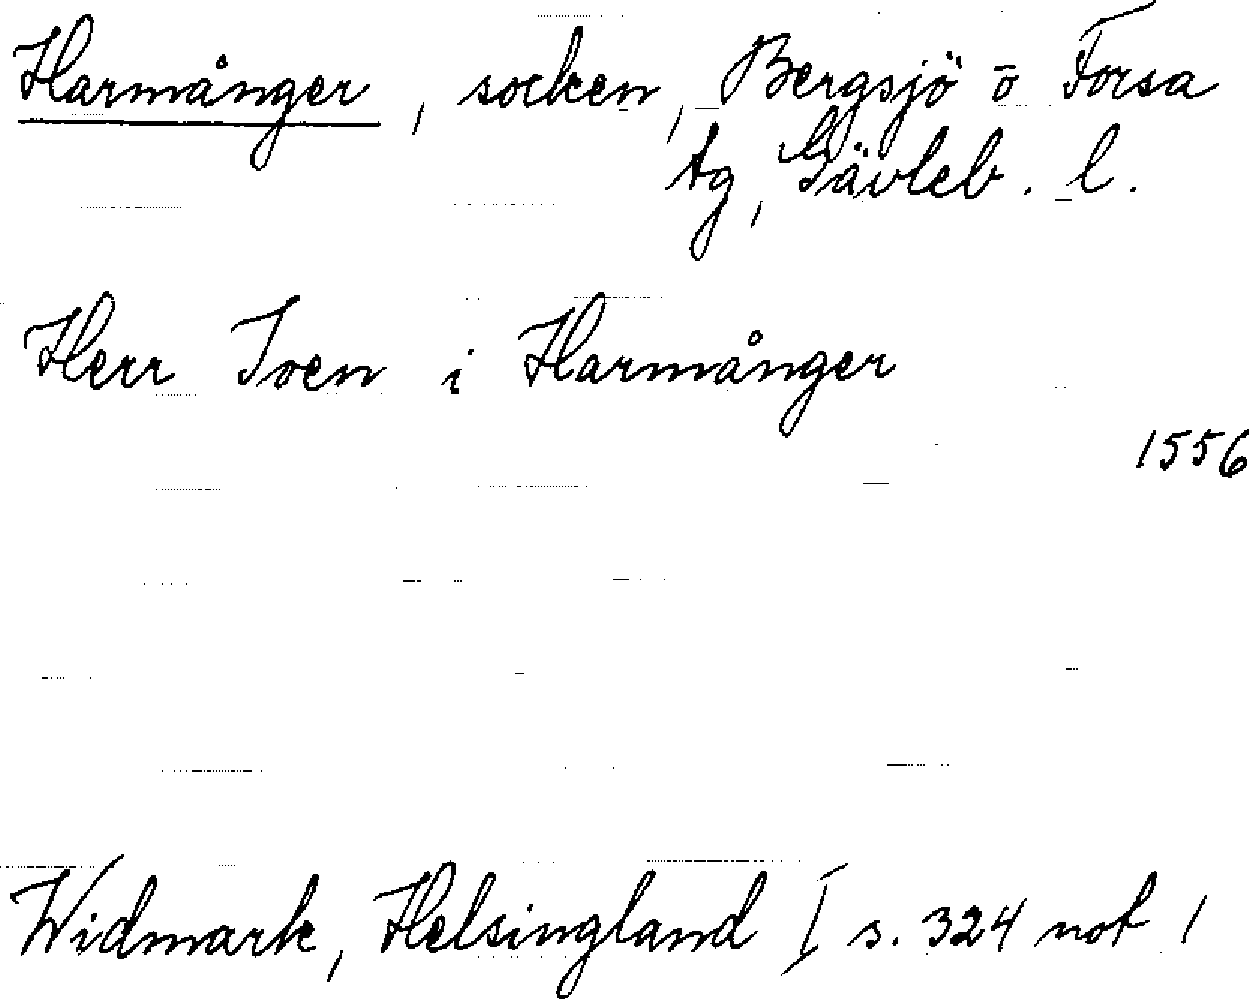 Harmånger, socken, Bergsjö o Forsa
tg, Gävleb. l.
Herr Iven i Harmånger
1556
Widmark, Helsingland I s. 324 not 1